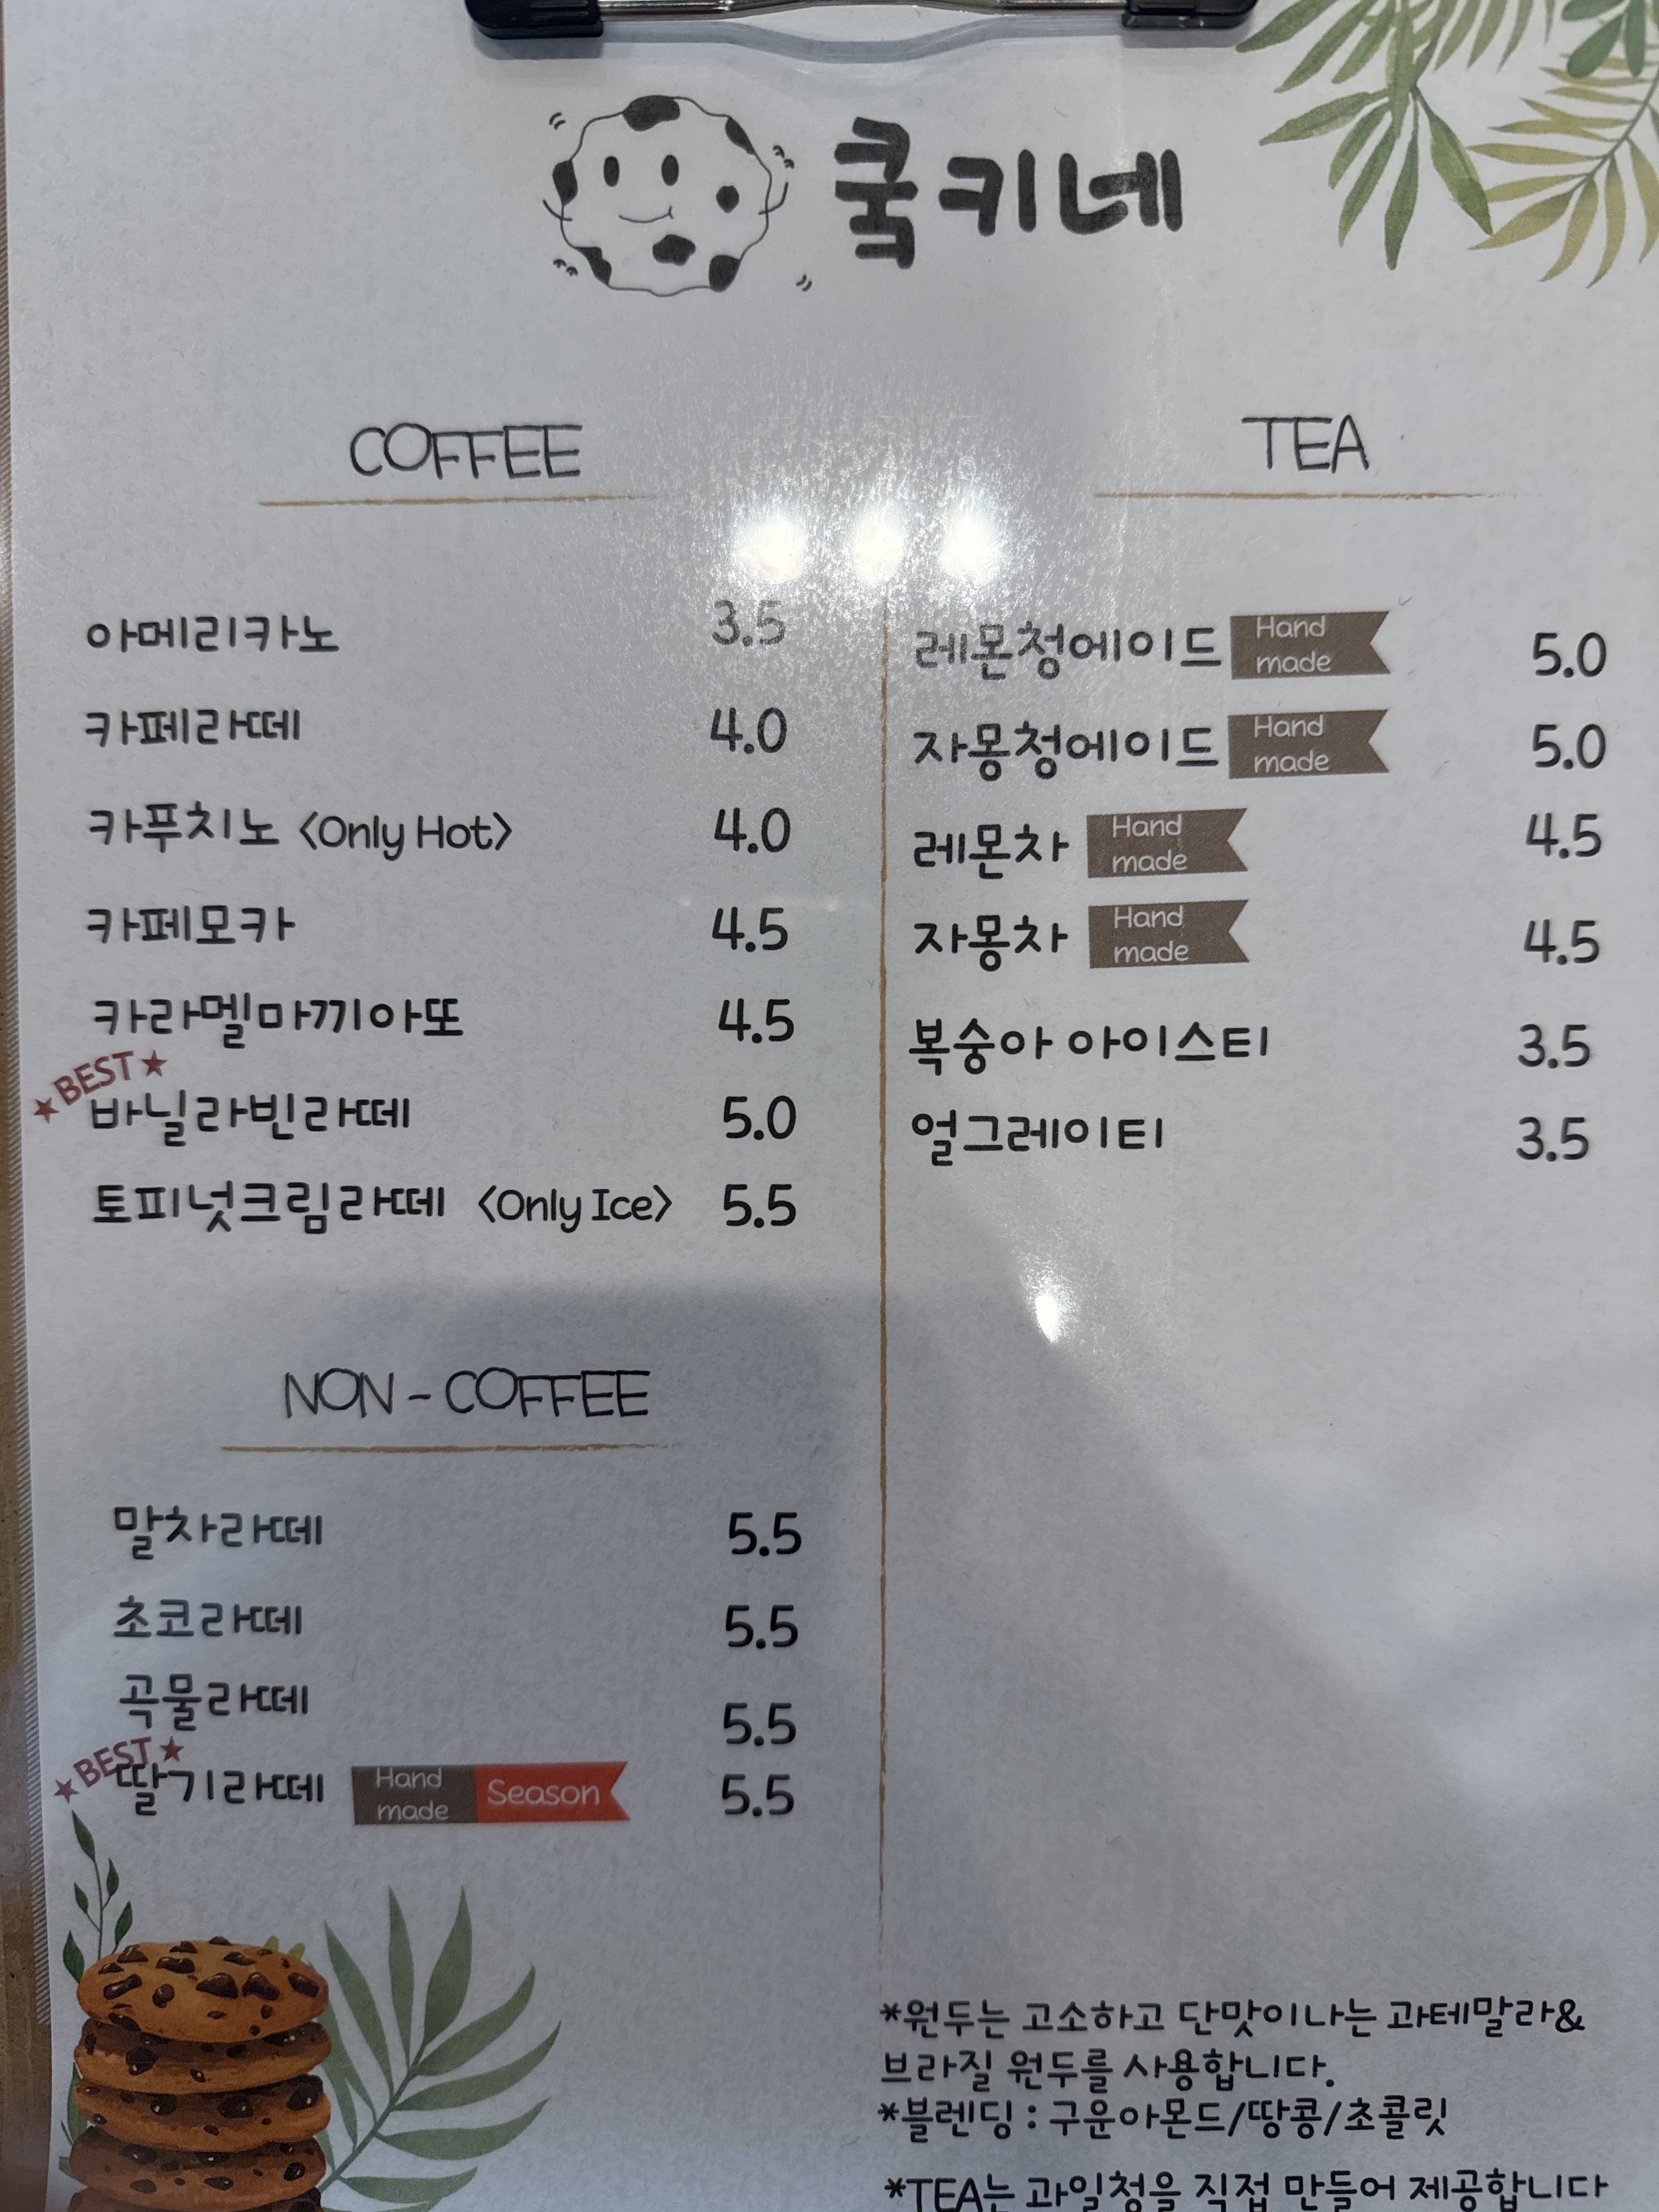 쿸키네
COFFEE
아메리카노 3.5
카페라떼 4.0
카푸치노 <Only Hot> 4.0
카페모카 4.5
카라멜마끼아또 4.5
★BEST★
바닐라빈라떼 5.0
토피넛크림라떼 <Only Ice> 5.5
NON - COFFEE
말차라떼 5.5
초코라떼 5.5
곡물라떼 5.5
★BEST★
딸기라떼 Hand made Season 5.5
TEA
레몬청에이드 Hand made 5.0
자몽청에이드 Hand made 5.0
레몬차 Hand made 4.5
자몽차 Hand made 4.5
복숭아 아이스티 3.5
얼그레이티 3.5
*원두는 고소하고 단맛이나는 과테말라&
브라질 원두를 사용합니다.
*블렌딩 : 구운아몬드/땅콩/초콜릿
*TEA는 과일청을 직접 만들어 제공합니다